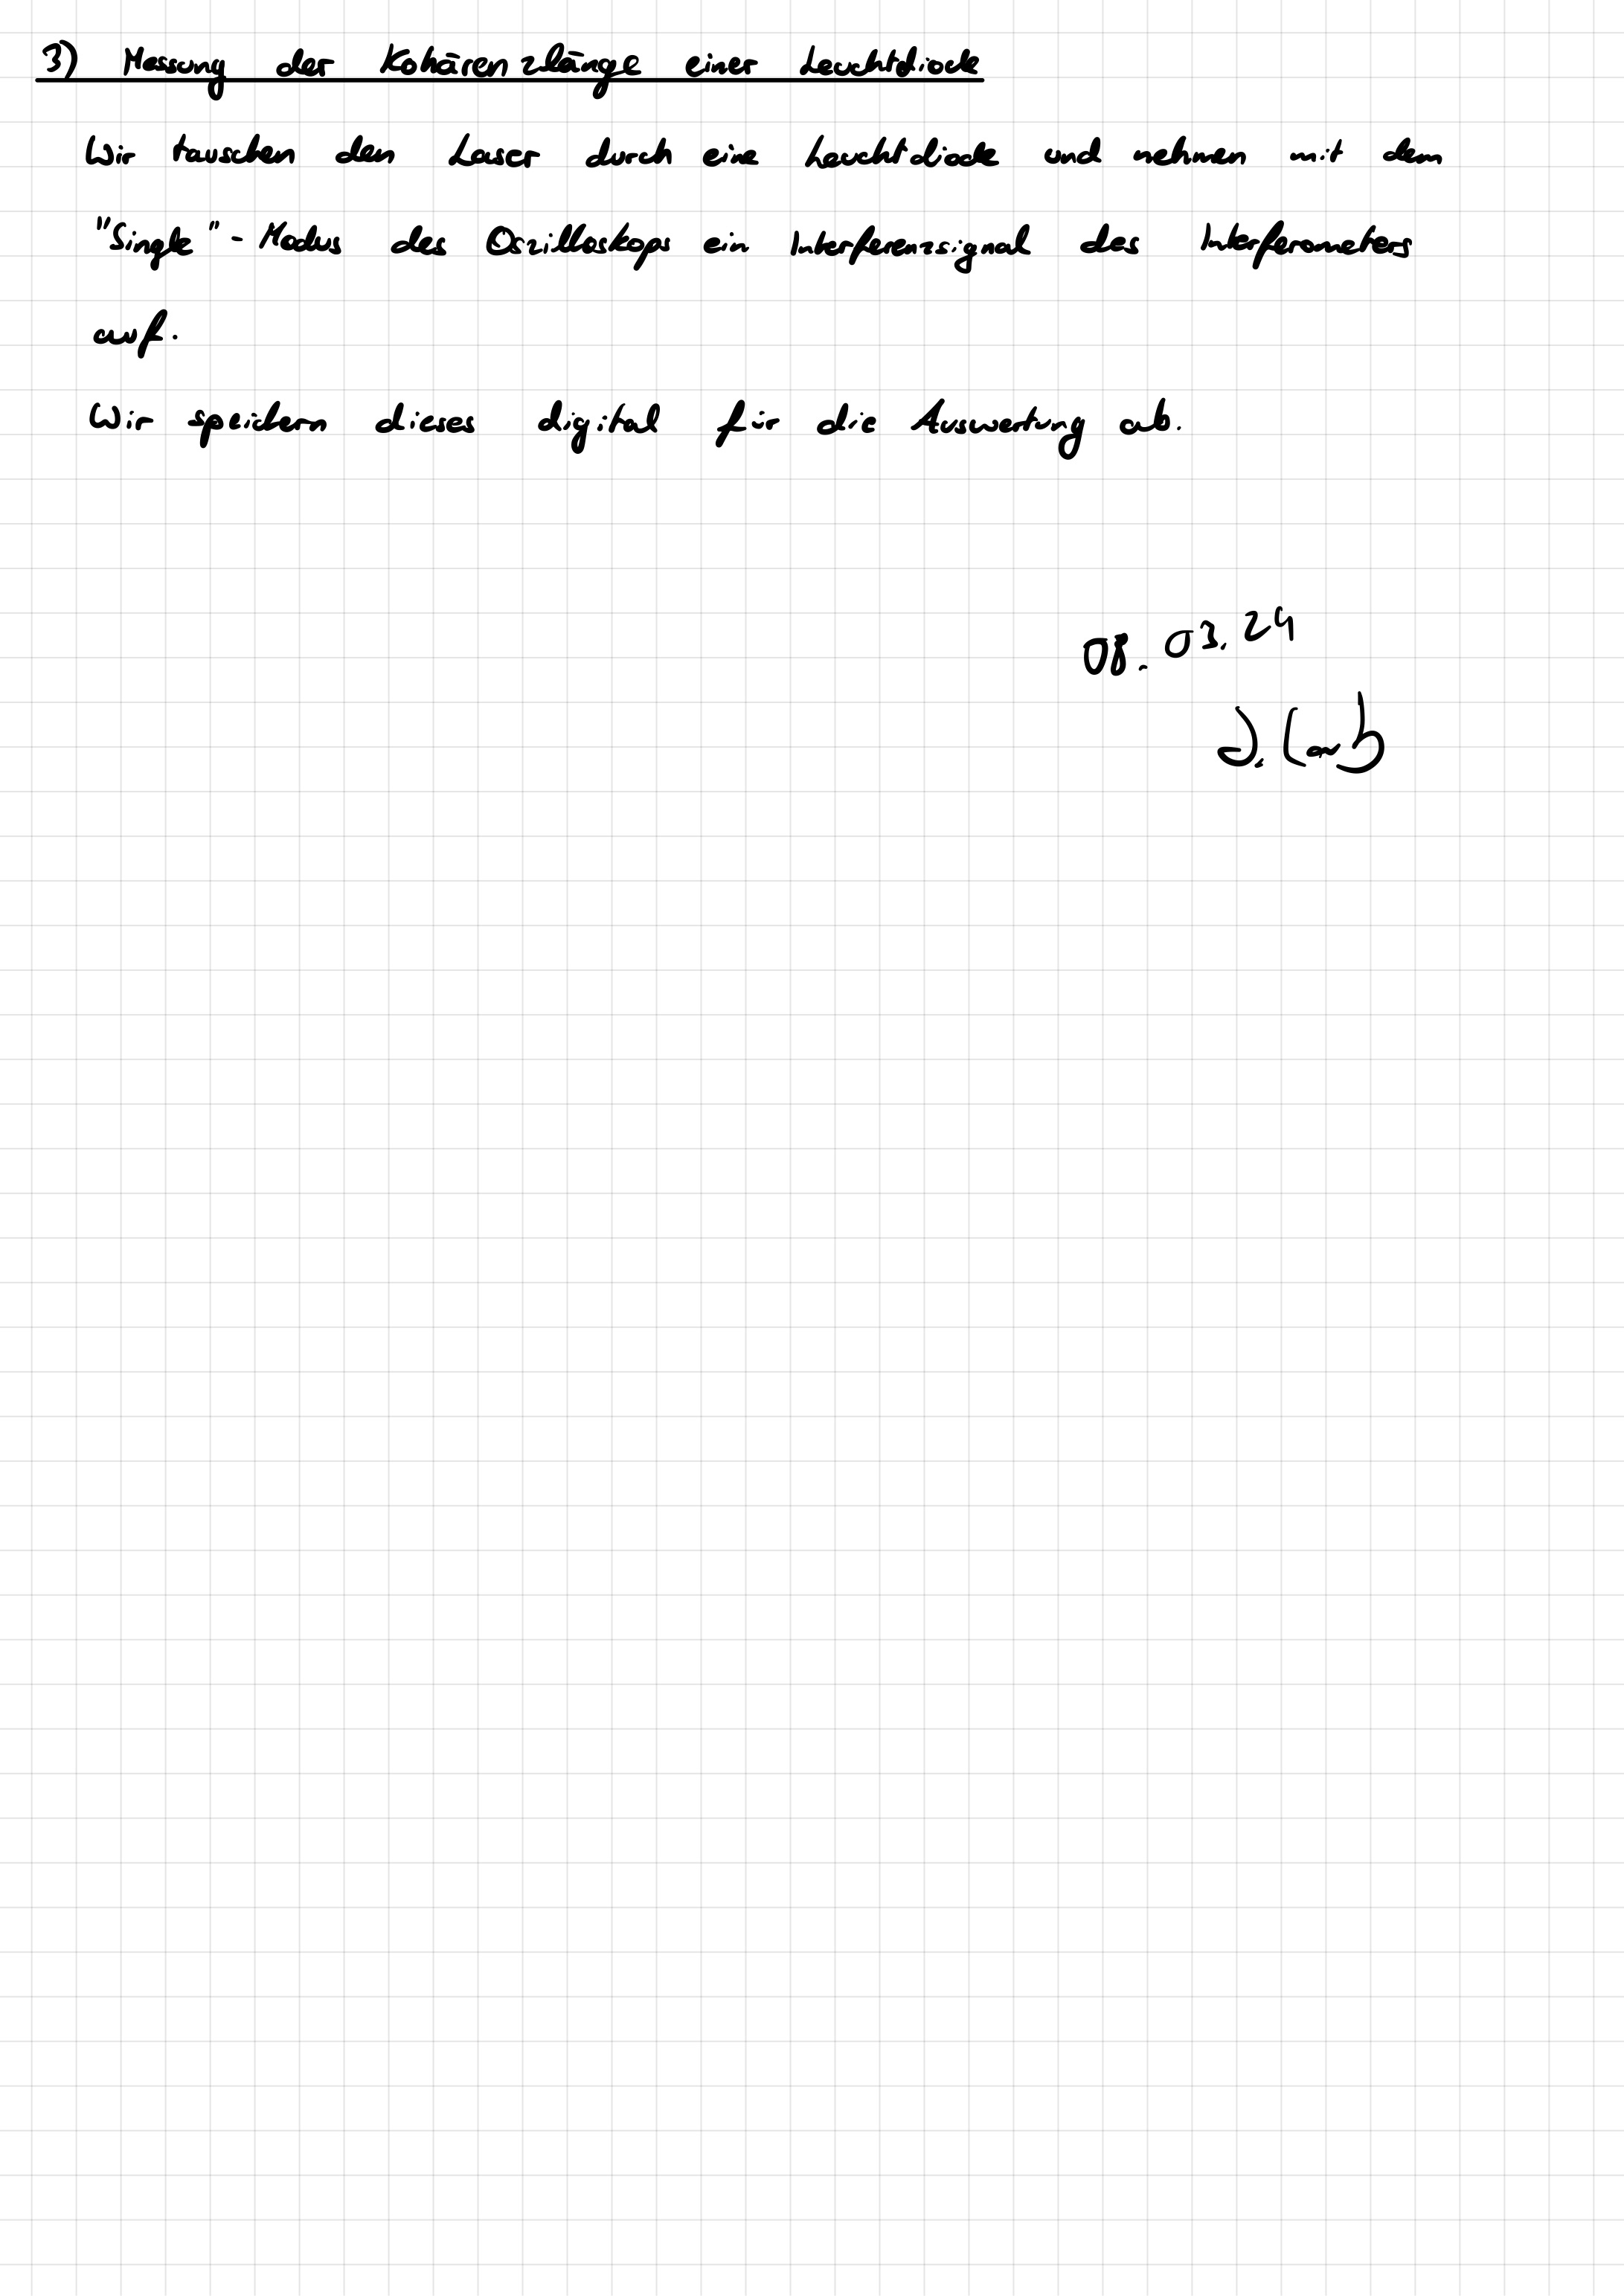 3) Messung der Kohärenzlänge einer Leuchtdiode
Wir tauschen den Laser durch eine Leuchtdiode und nehmen mit dem
"Single"-Modus des Oszilloskops ein Interferenzsignal des Interferometers
auf.
Wir speichern dieses digital für die Auswertung ab.
08.03.24